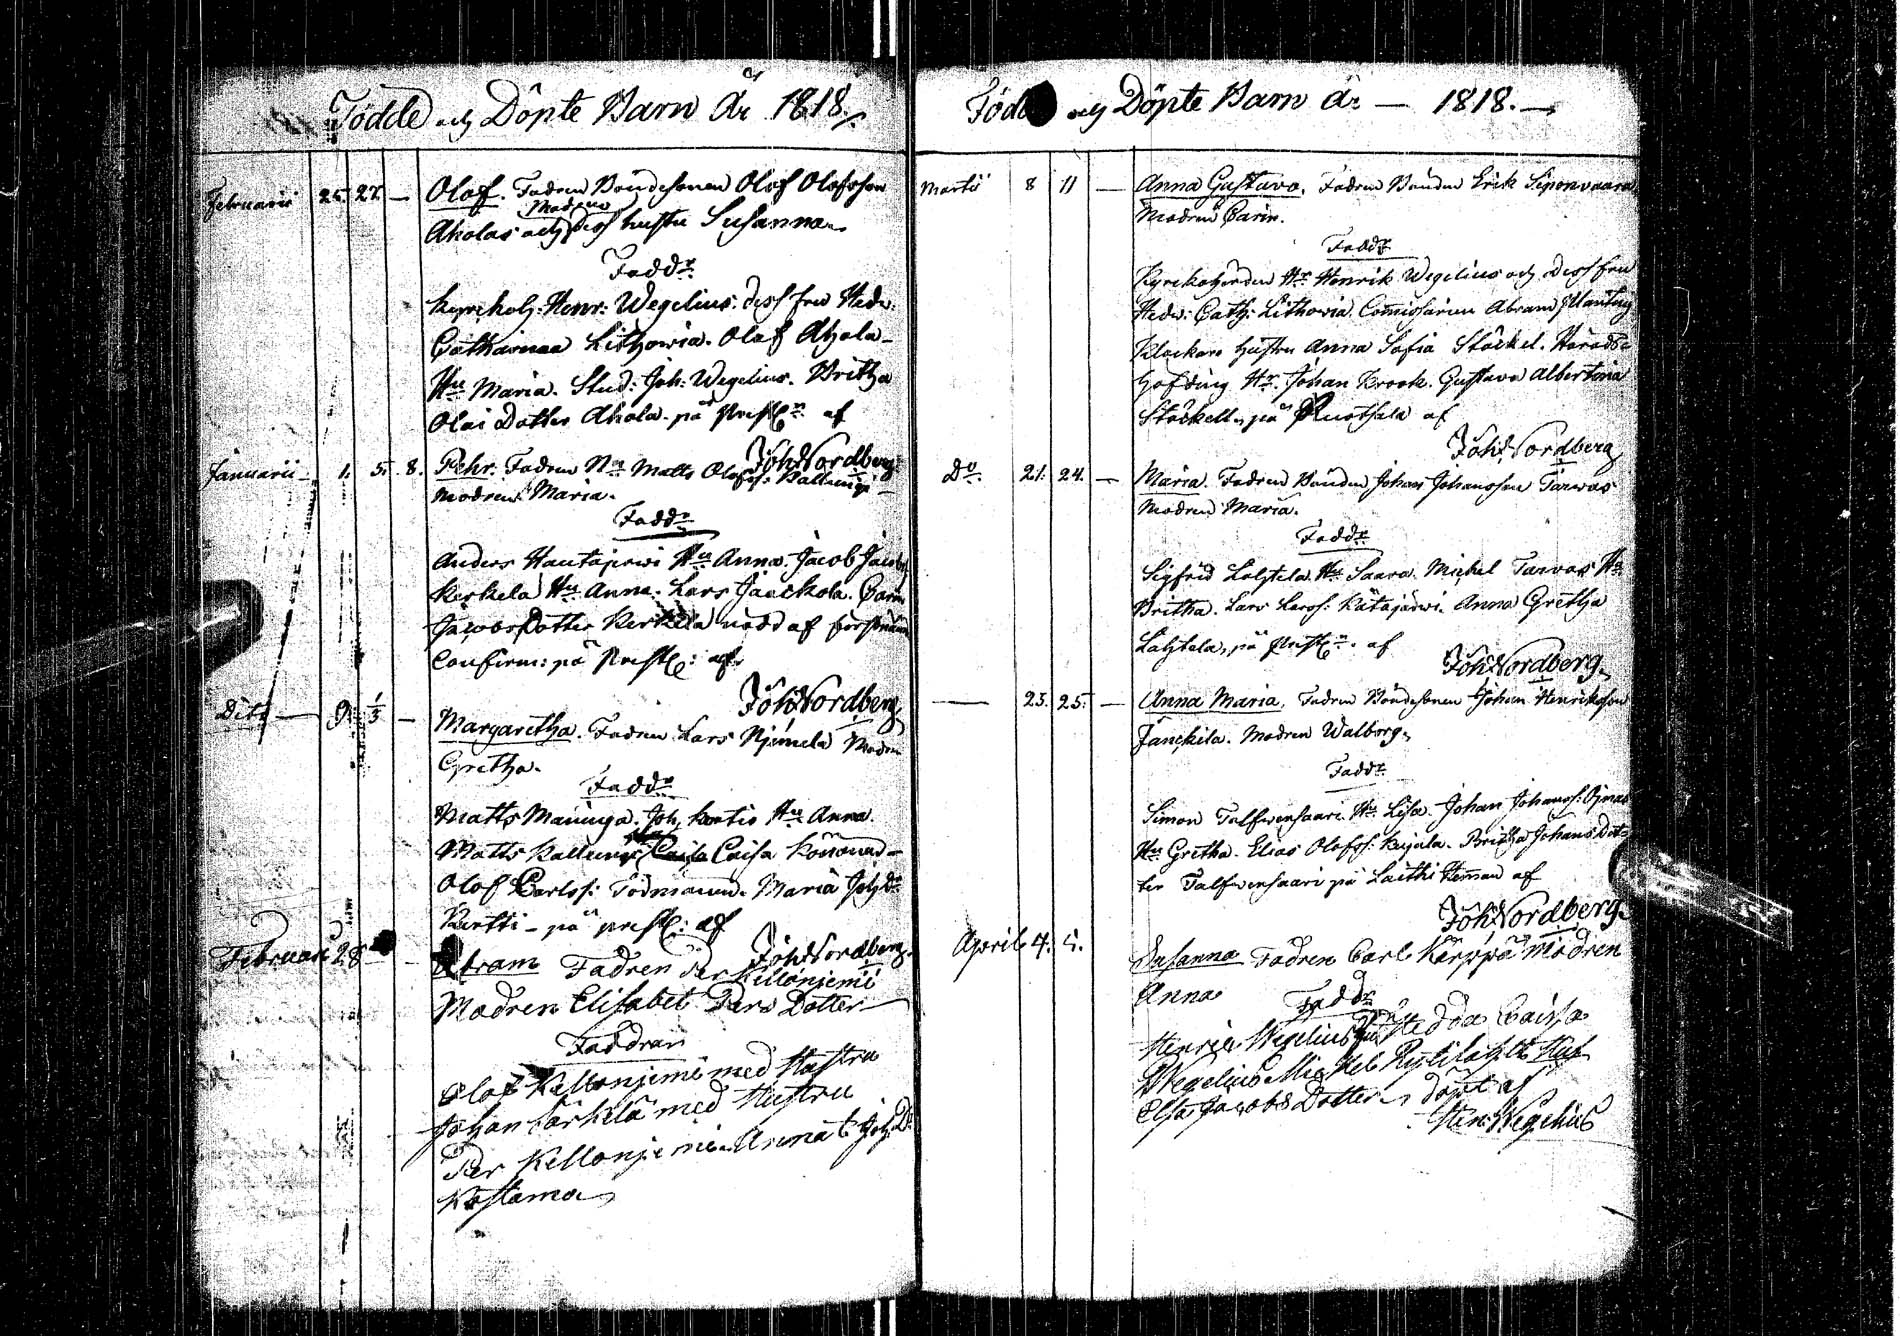 Födde och Döpte Barn År 1818.
Februarii 25. 27. — Olof. Fadren Bondesonen Olof Olofsson
Modren
Aholas och dess hustru Susanna.
Faddr
Kyrckoh: Henr: Wegelius. dess fru Hedv:
Catharina Lithovia. Olof Ahola
Hu Maria. Stud: Joh: Wegelius. Britha
Olai Dotter Ahola. på Prestg:n af
Joh. Nordberg
Januarii 1. 5. 8. Pehr. Fadren Matts Olofss: Kallunge
Modren Maria.
Faddr
Anders Hautajerwi Hu Anna. Jacob
Kerkela Hu Anna. Lars Jaackola. Carin
Jacobs Dotter Kerkela nödd af
Confirm: på Prestg: af
Joh. Nordberg
Dito — 9. 1/3 — Margaretha. Fadren Lars Njemela Modren
Gretha.
Faddr
Matts Maninga. Joh, Kantio Hu Anna
Matts Kallunge Caisa
Olof Carlss: Tödmann. Maria Joh:dr
Kantti — på prestg: af
Joh. Nordberg
Februari 28 Abram Fadren Per Kellonjemi
Modren Elisabet Pers Dotter
Faddrar
Olof Kellonjemi med Hustru
Johan Särkilä med Hustru
Per Kellonjemi. Anna Joh:Dr
Kostamo
Födde och Döpte Barn År — 1818. —
Martii 8 11 — Anna Gustava. Fadren Bonden Erik Siponvaara
Modren Carin.
Faddr
Kyrckoherden Hr Henrik Wegelius och dess fru
Hedv: Cath: Lithovia. Commissarien Abram Planting
Klockare hustru Anna Sofia Stöckel. Härads-
höfding Hr. Johan Brook. Gustava Albertina
Stöckell, på Ruothala af
Joh. Nordberg
Do. 21. 24. — Maria. Fadren Bonden Johan Johansson Tarwas
Modren Maria.
Faddr
Sigfrid Lahtela Hu Saara. Michel Tarwas Hu
Britha. Lars Larss: Kätajärwi. Anna Gretha
Lahtela, på Prestg:n. af
Joh. Nordberg.
— 23. 25. — Anna Maria. Fadren Bondesonen Johan Henriksson
Janckila. Modren Walborg.
Faddr
Simon Talfwensaari. Hu Lisa. Johan Johanss: Ojnas
Hu Gretha. Elias Olofss: Kujala. Britha Johans Dot-
ter Talfwensaari på Laithi Heman af
Joh. Nordberg.
April 4. 5. Susanna Fadren Carl Kärppä Modren
Anna
Faddr
Henric Wegelius Hedda Caisa
Wegelius Mickel Rytilahti Hu
Elsa Jacobs Dotter döpt af
Hen: Wegelius